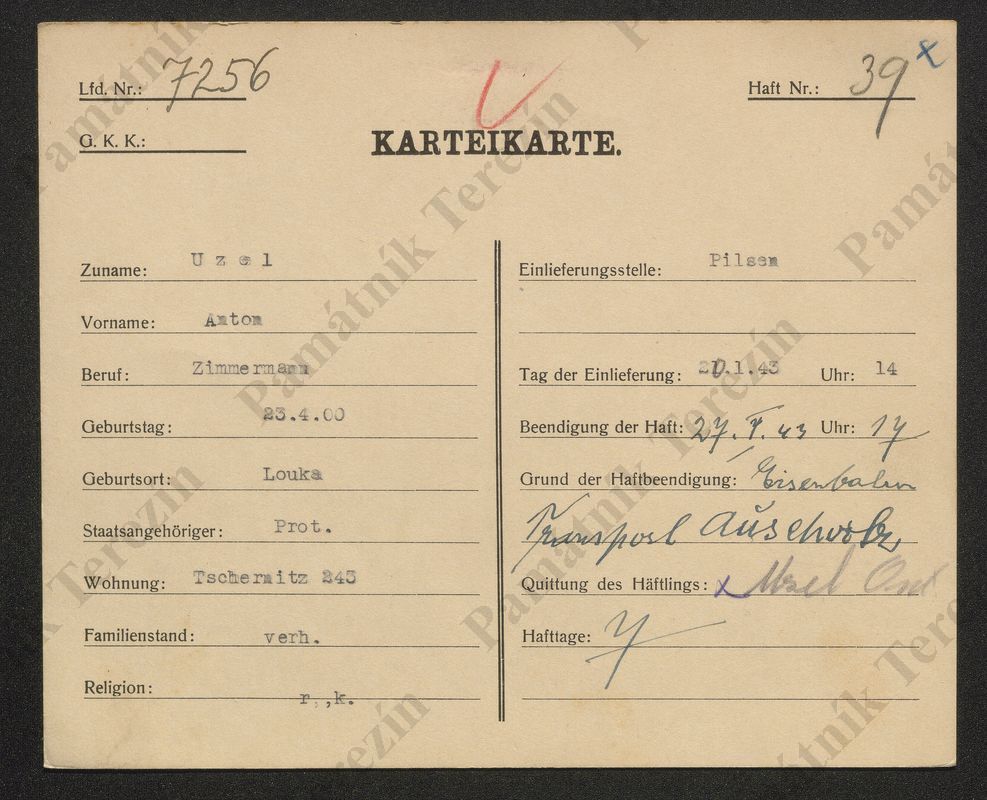 Lfd. Nr.: 7256
Haft Nr.: 39 x
G. K. K.:
KARTEIKARTE.
Zuname: Uzel
Vorname: Anton
Beruf: Zimmermann
Geburtstag: 23.4.00
Geburtsort: Louka
Staatsangehöriger: Prot.
Wohnung: Tschernitz 243
Familienstand: verh.
Religion: r,,k.
Einlieferungsstelle: Pilsen
Tag der Einlieferung: 20.1.43 Uhr: 14
Beendigung der Haft: 27. I. 43 Uhr: 17
Grund der Haftbeendigung: Eisenbahn
Transport Auschwitz
Quittung des Häftlings: x Uzel Ant
Hafttage: 7
Památník Terezín